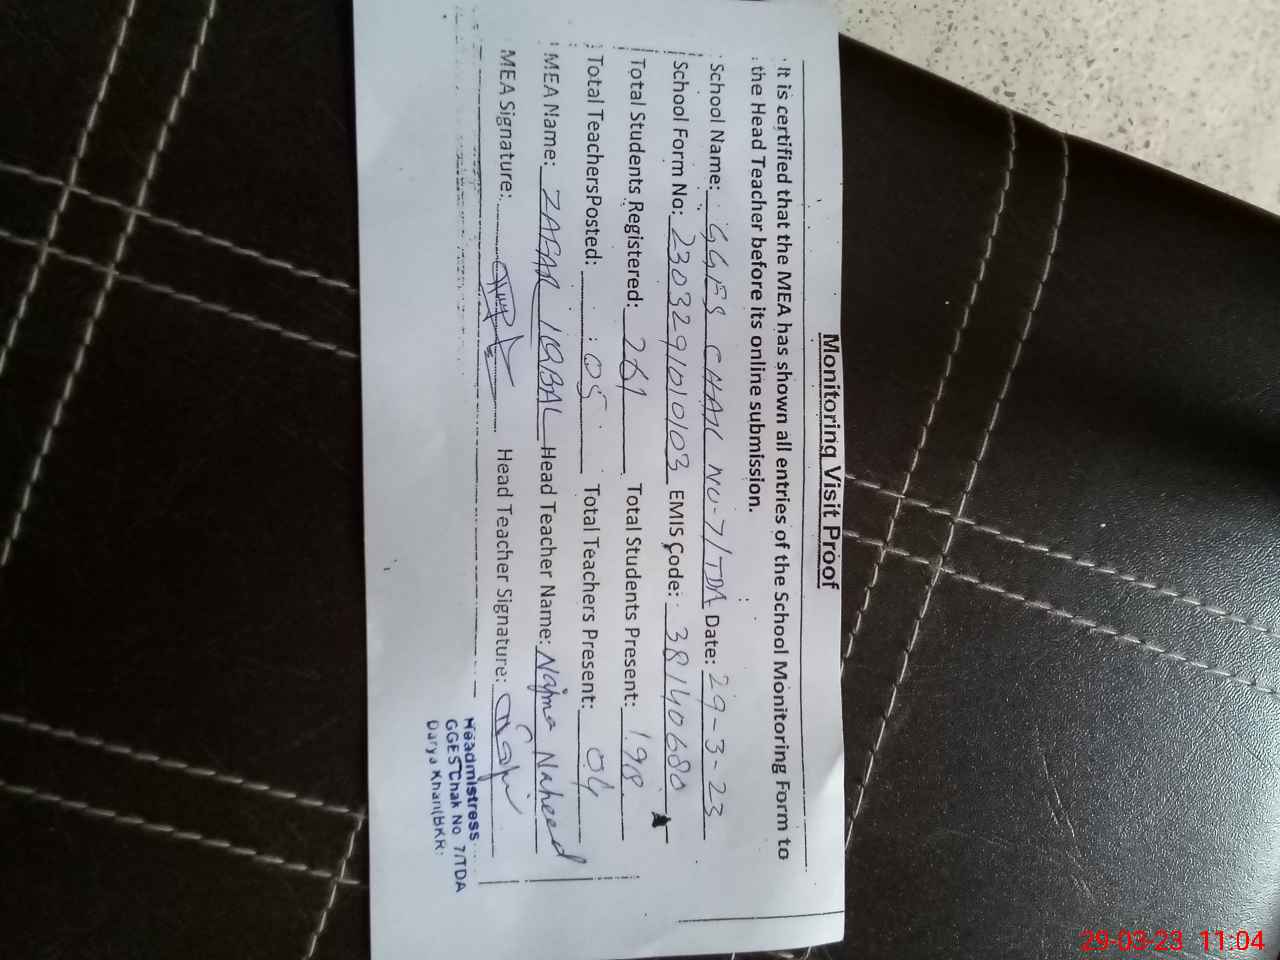 Monitoring Visit Proof
It is certified that the MEA has shown all entries of the School Monitoring Form to
the Head Teacher before its online submission.
School Name: GGES CHAK NO-7/TDA Date: 29-3-23
School Form No: 230329101003 EMIS Code: 38140680
Total Students Registered: 261 Total Students Present: 198
Total TeachersPosted: 05 Total Teachers Present: 04
MEA Name: ZAFAR IQBAL Head Teacher Name: Najma Naheed
MEA Signature: Head Teacher Signature:
Headmistress
GGES Chak No 7/TDA
Darya Khan(BKR)
29-03-23 11:04